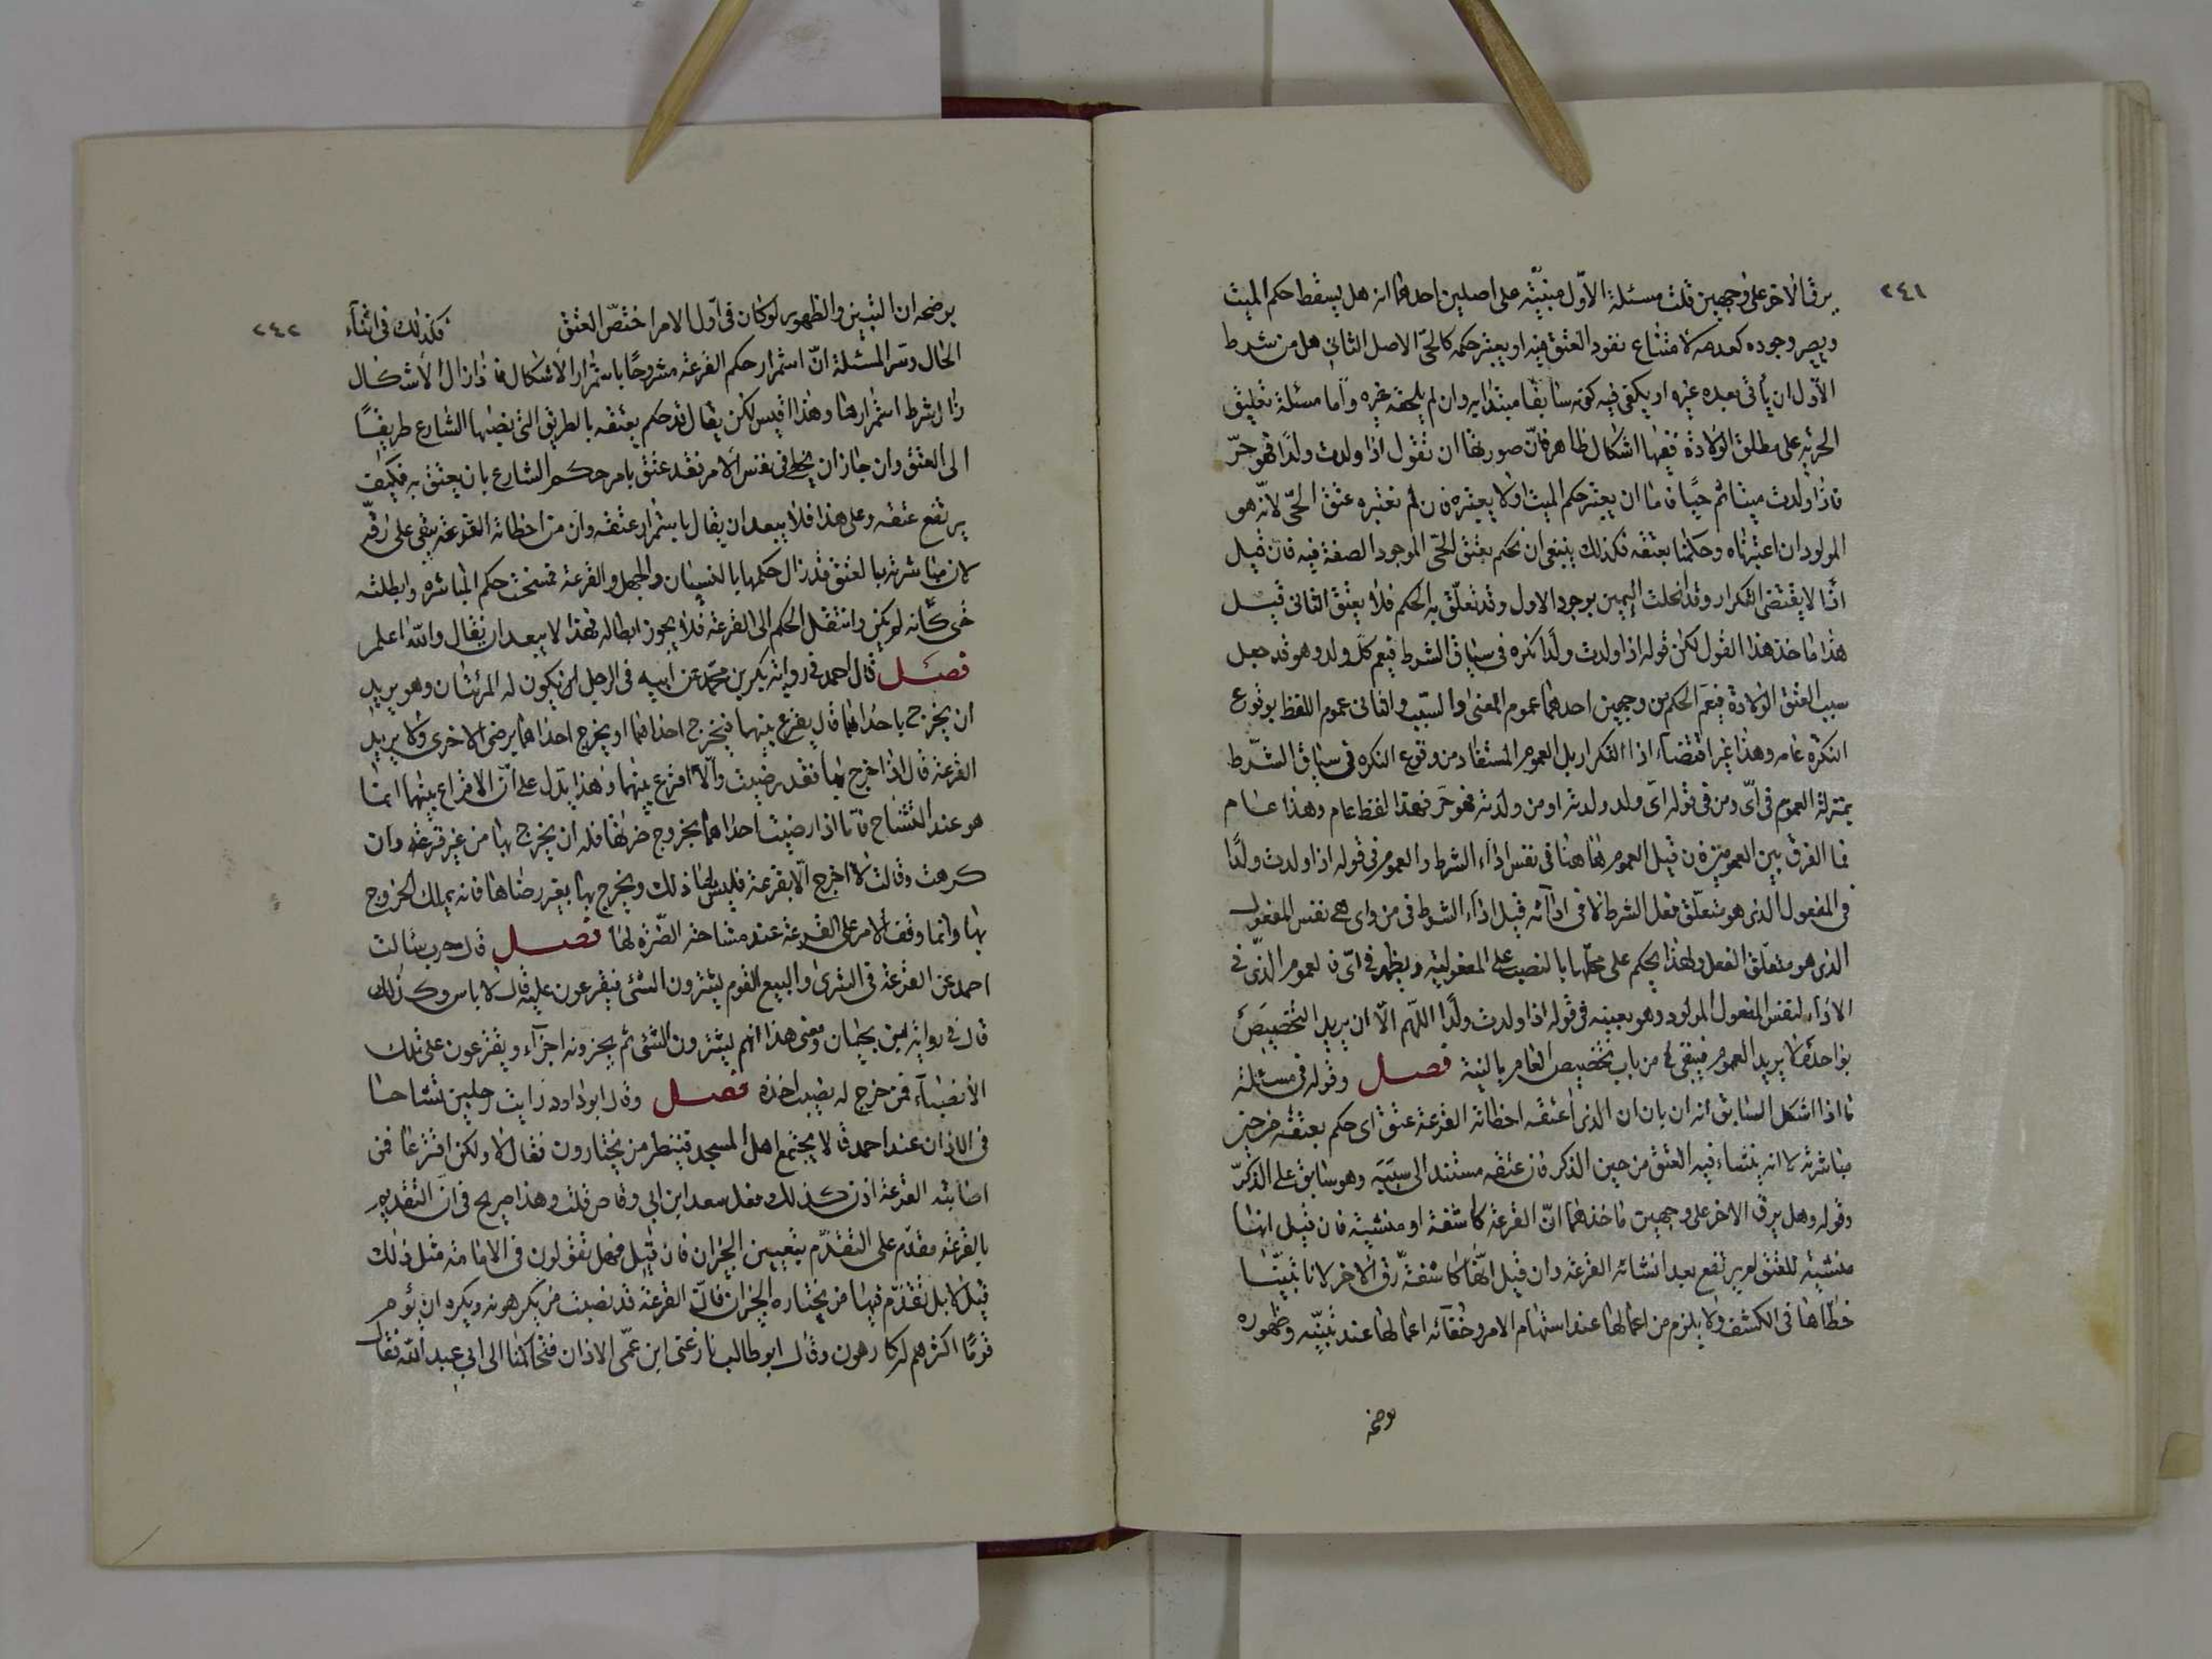 ٢٤١
يرق الاخر على وجهين قلت مسئلة الاوّل مبنيّة على اصلين احدهما انه هل يسقط حكم الميت
ويصير وجوده كعدمه لامتناع نفود العتق فيه او يعتبر حكمه كالحىّ الاصل الثانى هل من شرط
الاوّل ان يأتى بعده غيره او يكفى فيه كونه سابقا مبتدا به وان لم يلحقه غيره واما مسئلة تعليق
الحريه على مطلق الولادة ففيها اشكال ظاهر فانّ صورتها ان تقول اذا ولدت ولدًا فهو حرّ
فاذا ولدت ميتا ثم حيًا فاما ان يعتبر حكم الميت اولا يعتبره فان لم نعتبره عتق الحىّ لانّه هو
المولود ان اعتبرناه وحكمنا بعتقه فكذلك ينبغى ان نحكم بعتق الحىّ الموجود الصفة فيه فان قيل
اذا لا يقتضى التكرار وقد انحلت اليمين بوجود الاول وقد تعلّق به الحكم فلا يعتق الثانى قيل
هذا ماخذ هذا القول لكن قوله اذا ولدت ولدًا نكره فى سياق الشرط فيعم كل ولد وهو قد جعل
سبب العتق الولادة فيعم الحكم من وجهين احدهما عموم المعنى والسبب والثانى عموم اللفظ بوقوع
النكرة عامه وهذا غير اقتضاء اذا التكرار بل العموم المستفاد من وقوع النكره فى سياق الشرط
بمنزلة العموم فى اىّ ومن فى قوله اى ولد ولدته او من ولدته فهو حرّ فهذا لفظ عام وهذا عام
فما الفرق بين العمومين فان قيل العموم هاهنا فى نفس اداء الشرط والعموم فى قوله اذا ولدت ولدًا
فى المفعول الذى هو متعلّق فعل الشرط لا فى اداته قيل اداء الشرط فى من واى هى نفس المفعول
الذى هو متعلّق الفعل ولهذا يحكم على محلها بالنصب على المفعولية ويظهر فى اىّ فالعموم الذى فى
الاداء لنفس المفعول المولود وهو بعينه فى قوله اذا ولدت ولدًا اللهّم الّا ان يريد التخصيص
بواحد لا يريد العموم فيبقى من باب تخصيص العام بالنية فصل وقوله فى مسئلة
ما اذا اشكل السابق انه ان بان ان الذى اعتقه اخطاته القرعة عتق اى حكم بعتقه من حين
مباشرته لا انه ينشاء فيه العتق من حين الذكر فان عتقه مستند الى سببه وهو سابق على الذكر
وقوله وهل يرق الاخر على وجهين ماخذهما انّ القرعة كاشفة او منشية فان قيل انها
منشية للعتق لم يرتفع بعد انشائه القرعة وان قيل انّها كاشفة رقّ الاخر لانا تبيّنا
خطاها فى الكشف ولا يلزم من اعمالها عند استبهام الامر وخفائه اعمالها عند تبيّنه وظهوره
يوضحه
٢٤٢
يوضحه ان التبين والظهور لو كان فى اوّل الامر اختصّ العتق فكذلك فى اثناء
الحال وسرّ المسئلة انّ استمرار حكم القرعة مشروطًا باستمرار الاشكال فاذا زال الاشكال
زال شرط استمرارها وهذا اقيس لكن يقال قد حكم بعتقه بالطريق التى نصبها الشارع طريقًا
الى العتق وان جاز ان يخطى فى نفس الامر فقد عتق بامر حكم الشارع بان يعتق به فكيف
يرتفع عتقه وعلى هذا فلا يبعد ان يقال باستمرار عتقه وان من اخطاته القرعة يبقى على رقّه
لان مباشرته بالعتق قد زال حكمها بالنسيان والجهل والقرعة نسخت حكم المباشره وابطلته
حتى كأنه لم يكن وانتقل الحكم الى القرعة فلا يجوز ابطاله فهذا لا يبعد ان يقال والله اعلم
فصل قال احمد فى رواية بكر بن محمّد عن ابيه فى الرجل يكون له امرئتان وهو يريد
ان يخرج باحداهما قال يقرع بينهما فيخرج احداهما او يخرج احداهما برضى الاخرى ولا يريد
القرعة قال اذا خرج بها فقد رضيت والّا اقرع بينهما وهذا يدل على انّ الاقراع بينهما انما
هو عند التشاح فاما اذا رضيت احداهما بخروج ضرتها فله ان يخرج بها من غير قرعة وان
كرهت وقالت لا اخرج الا بقرعة فليس لها ذلك ويخرج بها بغير رضاها فانه يملك الخروج
بها وانما وقف الامر على القرعة عند مشاحة الضّرّة لها فصل قال حرب سالت
احمد عن القرعة فى الشرى والبيع القوم يشترون الشىء فيقرعون عليه قال لا باس وكذلك
قال فى رواية ابن بختان ومعنى هذا انهم يشترون الشىء ثم يجزونه اجزاء ويقترعون على تلك
الانصباء فمن خرج له نصيب اخذه فصل وقال ابو داود رايت رجلين تشاحا
فى الاذان عند احمد قالا يجتمع اهل المسجد فينظر من يختارون فقال لا ولكن اقترعا فمن
اصابته القرعة اذن كذلك فعل سعد ابن ابى وقاص قلت وهذا صريح فى انّ التقديم
بالقرعة مقدّم على التقدّم بتعيين الجيران فان قيل فهل تقولون فى الامامة مثل ذلك
قيل لا بل نقدّم فيها من يختاره الجيران فانّ القرعة قد تصيب من يكرهونه ويكره ان يؤم
قومًا اكثرهم له كارهون وقال ابو طالب نازعنى ابن عمّى الاذان فتحاكمنا الى ابى عبد الله فقال